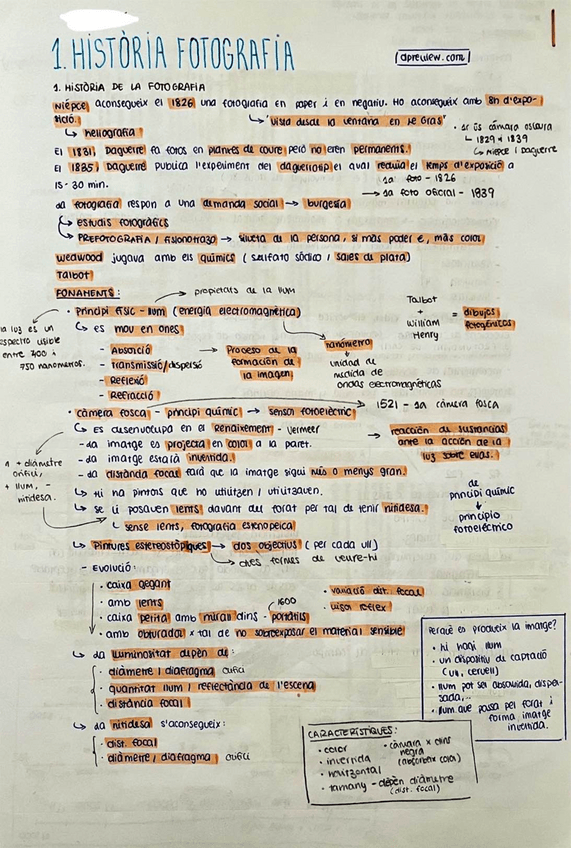 1. HISTÒRIA FOTOGRAFIA
dpreview.com
1. HISTÒRIA DE LA FOTOGRAFIA
Niépce aconsegueix el 1826 una fotografia en paper i en negatiu. Ho aconsegueix amb 8h d'expo-
sició.
↳ "Vista desde la ventana en le Gras"
↳ heliografia
· se ús cámara oscura
↳ 1829 x 1839
↳ Niepce i Daguerre
El 1831, Daguerre fa fotos en planxes de coure però no eren permanents.
El 1835, Daguerre publica l'experiment del daguerrotip el qual reduïa el temps d'exposició a
15-30 min.
1a foto - 1826
→ 1a foto oficial - 1839
La fotografia respon a una demanda social → burgesia
↳ estudis fotogràfics
↳ PREFOTOGRAFIA / fisionotrazo → silueta de la persona, si més poder $ é, més color
Wedwood jugava amb els químics (sulfato sódico / sales de plata)
Talbot
FONAMENTS:
→ propietats de la llum
· Principi físic - llum (energia electromagnètica)
la luz es un
espectro visible
entre 400 i
750 nanómetros.
↳ es mou en ones
- Absorció
- Transmissió/dispersió
- Reflexió
- Refracció
→ Proceso de la
formación de
la imagen
nanómetro
↓
unidad de
medida de
ondas electromagnéticas
Talbot
+
William
Henry
= dibujos
fotogénicos
· càmera fosca - principi químic → sensor fotoelèctric
→ 1521 - 1a càmera fosca
↳ es desenvolupa en el Renaixement - Vermeer
- La imatge es projecta en color a la paret.
- La imatge estarà invertida.
- La distància focal farà que la imatge sigui més o menys gran.
→ reacción de sustancias
ante la acción de la
luz sobre ellas.
1 + diàmetre
orifici,
+ llum, -
nitidesa.
↳ Hi ha pintors que ho utilitzen / utilitzaven.
↳ se li posaven lents davant del forat per tal de tenir nitidesa.
↳ sense lents, fotografia estenopeica
de
principi químic
↓
principio
fotoeléctrico
↳ Pintures estereotòpiques → dos objectius (per cada ull)
→ altres formes de veure-hi
- Evolució:
· caixa gegant
· amb lents
· caixa petita amb mirall dins - portàtils
1600
· amb obturador x tal de no sobreexposar el material sensible
· variació dist. focal
· visor réflex
↳ La lluminositat depèn de:
· diàmetre / diafragma orifici
· quantitat llum / reflectància de l'escena
· distància focal
↳ La nitidesa s'aconsegueix:
· dist. focal
· diàmetre / diafragma orifici
Perquè es produeix la imatge?
· hi hagi llum
· un dispositiu de captació
(ull, cervell)
· llum pot ser absorvida, disper-
sada,...
· llum que passa pel forat i
forma imatge
invertida.
CARACTERÍSTIQUES:
· color
· invertida
· horitzontal
· tamany - depèn diàmetre
(dist. focal)
· càmara x dins
negra
(absorbeix color)